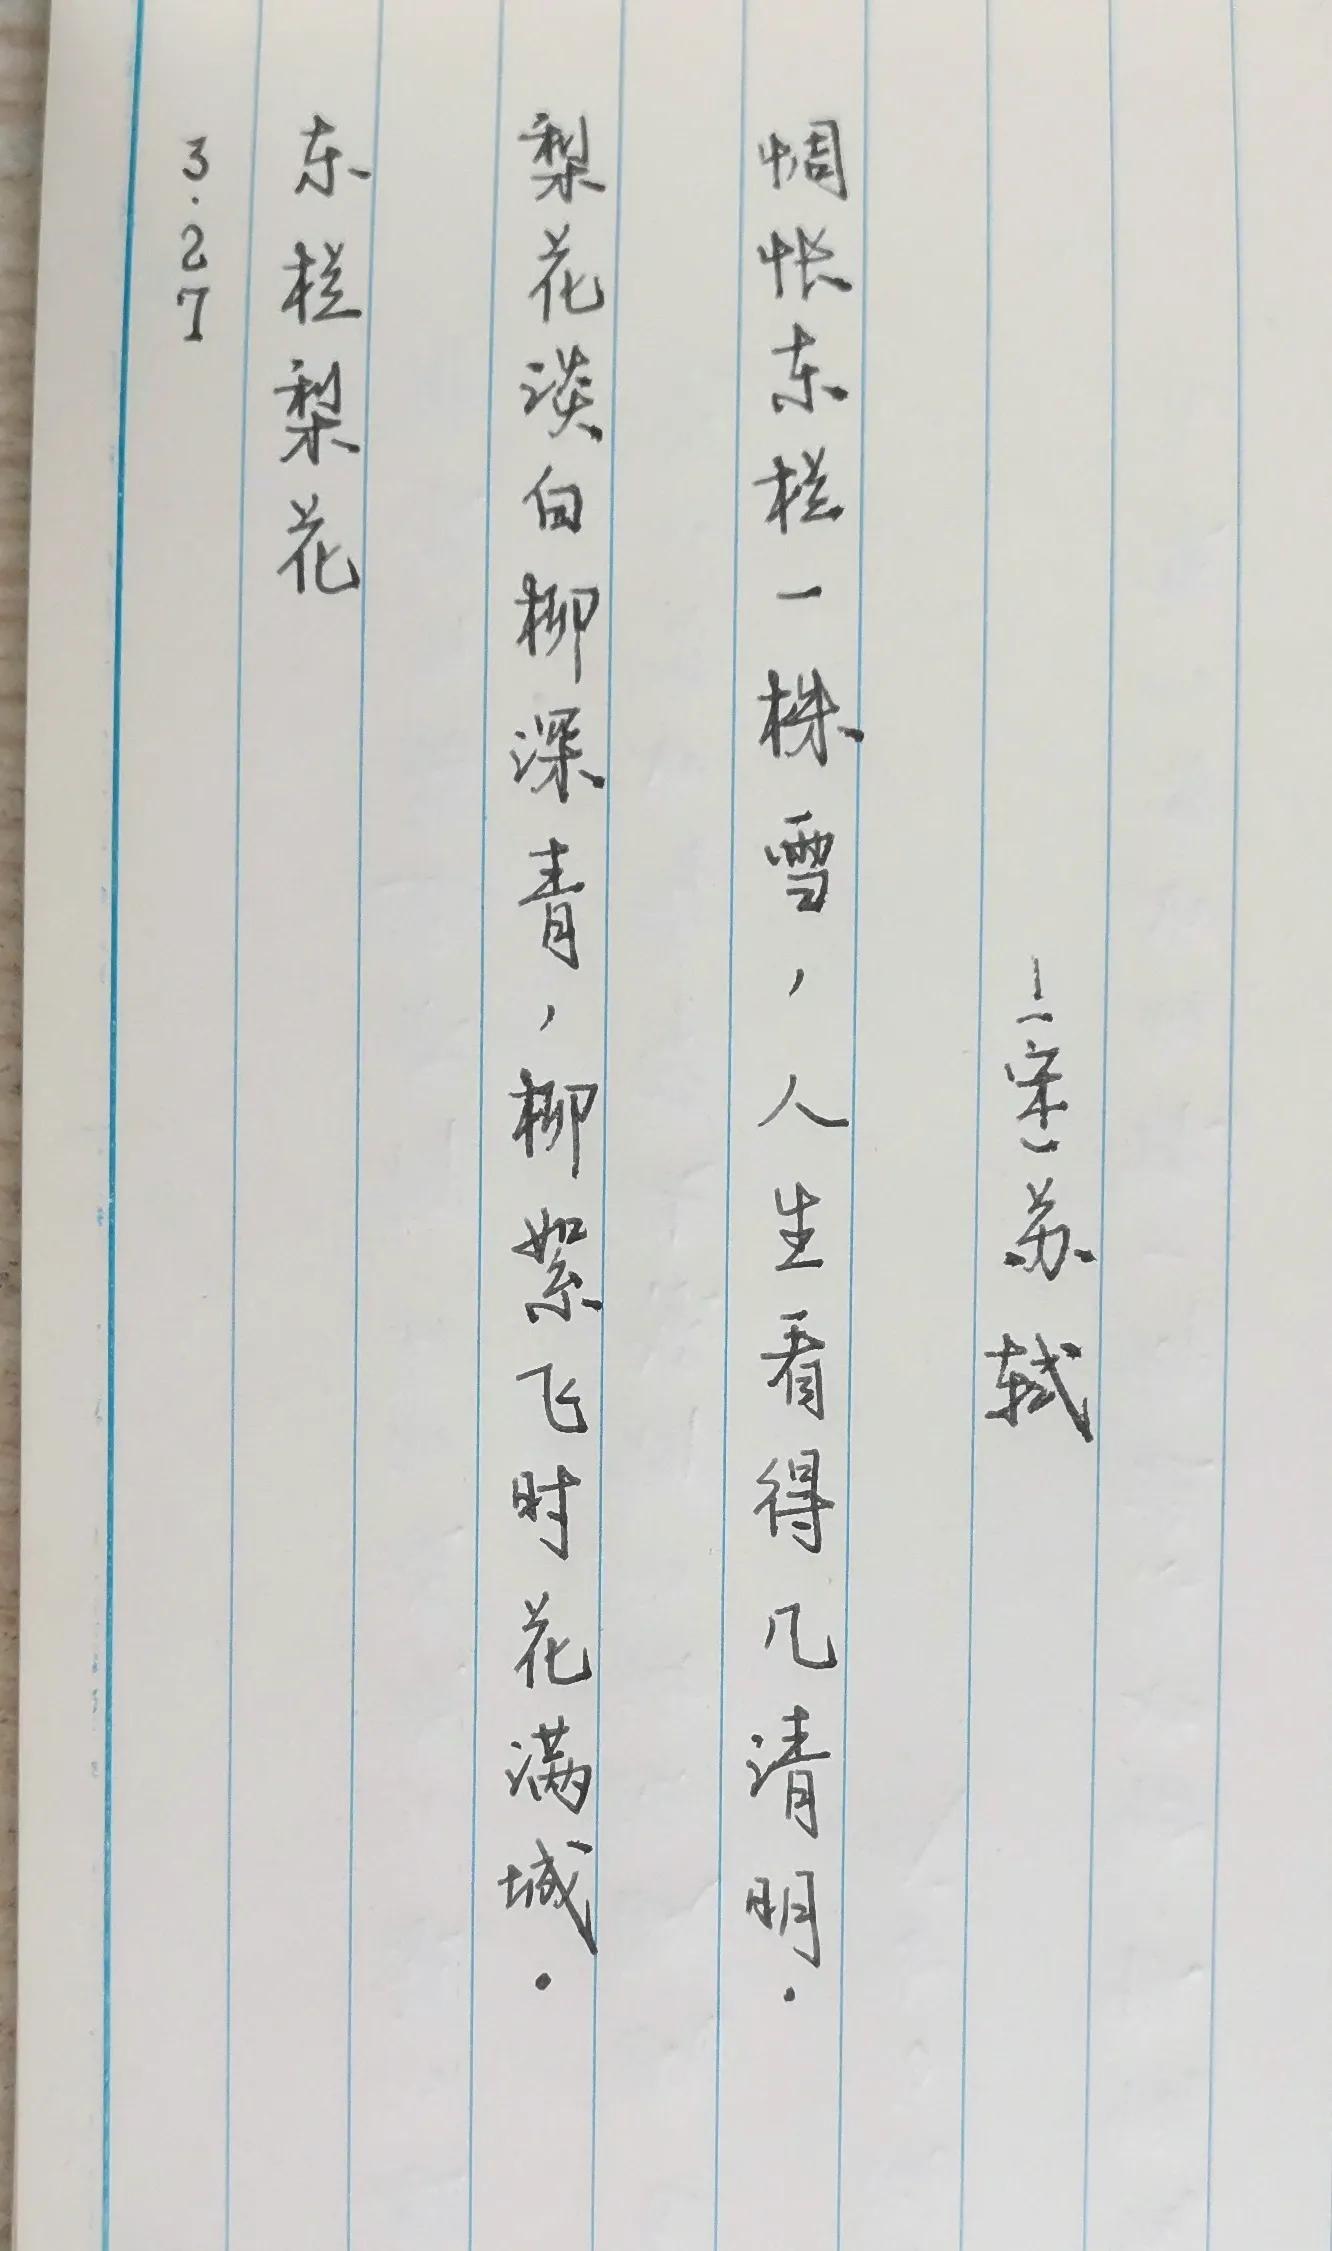 3.27
东栏梨花
梨花淡白柳深青，柳絮飞时花满城.
惆怅东栏一株雪，人生看得几清明.
—(宋)苏轼